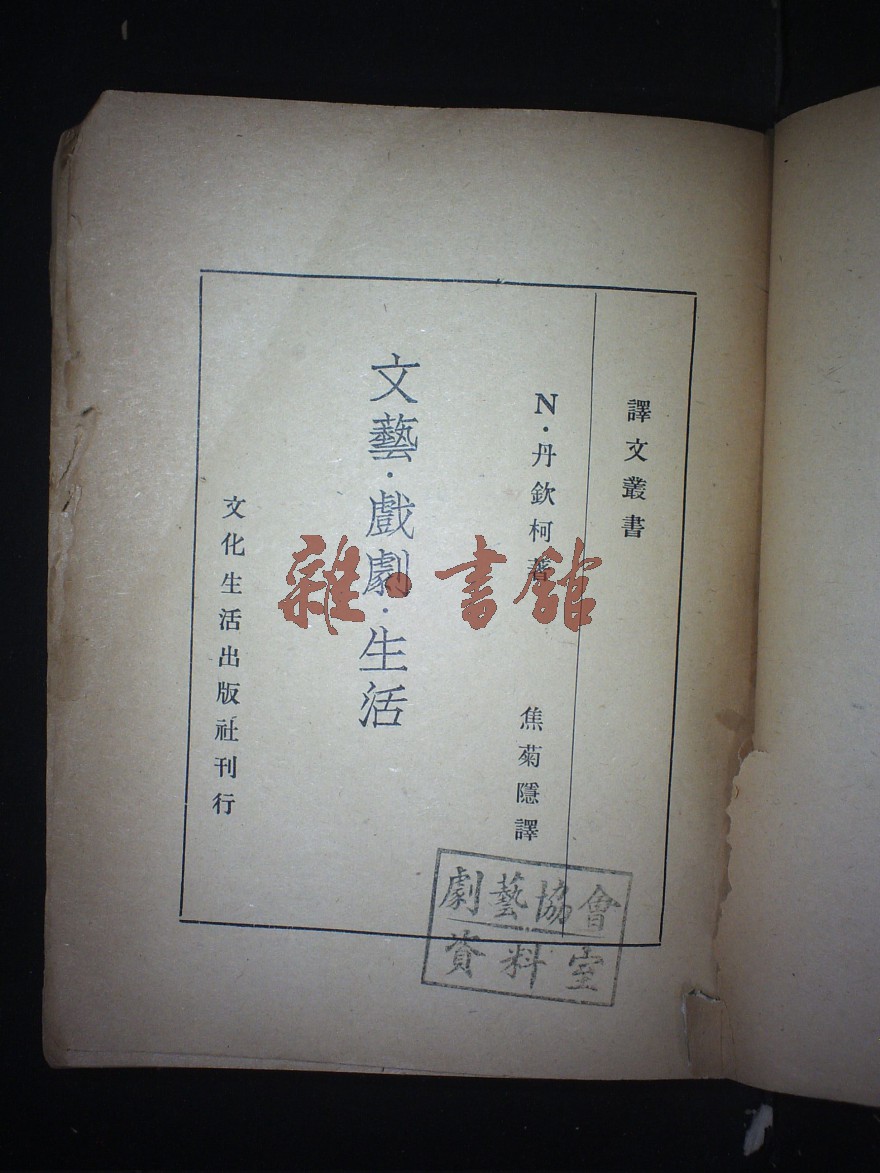 譯文叢書
N·丹欽柯著
焦菊隱譯
文藝·戲劇·生活
文化生活出版社刊行
劇藝協會
資料室
雜·書館